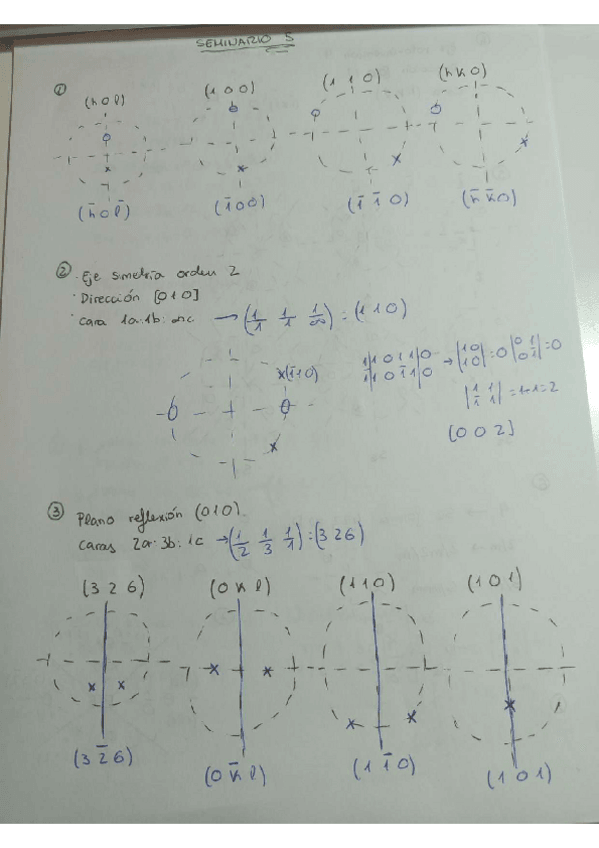 SEMINARIO 5
①
(h 0 l) (1 0 0) (1 1 0) (h k 0)
(h̄ 0 l̄) (1̄ 0 0) (1̄ 1̄ 0) (h̄ k̄ 0)
② · Eje simetría orden 2
· Dirección [0 1 0]
· Cara 1a:1b:∞c → (1/1 1/1 1/∞) = (1 1 0)
x(1̄ 1 0)
1|1 0 1 1|0
1|1 0 1̄ 1|0
→ |1 0 / 1 0| = 0 |0 1 / 0 1̄| = 0
|1 1 / 1̄ 1| = 1+1 = 2
[0 0 2]
③ Plano reflexión (0 1 0).
Caras 2a:3b:1c → (1/2 1/3 1/1) = (3 2 6)
(3 2 6) (0 k l) (1 1 0) (1 0 1)
(3 2̄ 6) (0 k̄ l) (1 1̄ 0) (1 0 1)